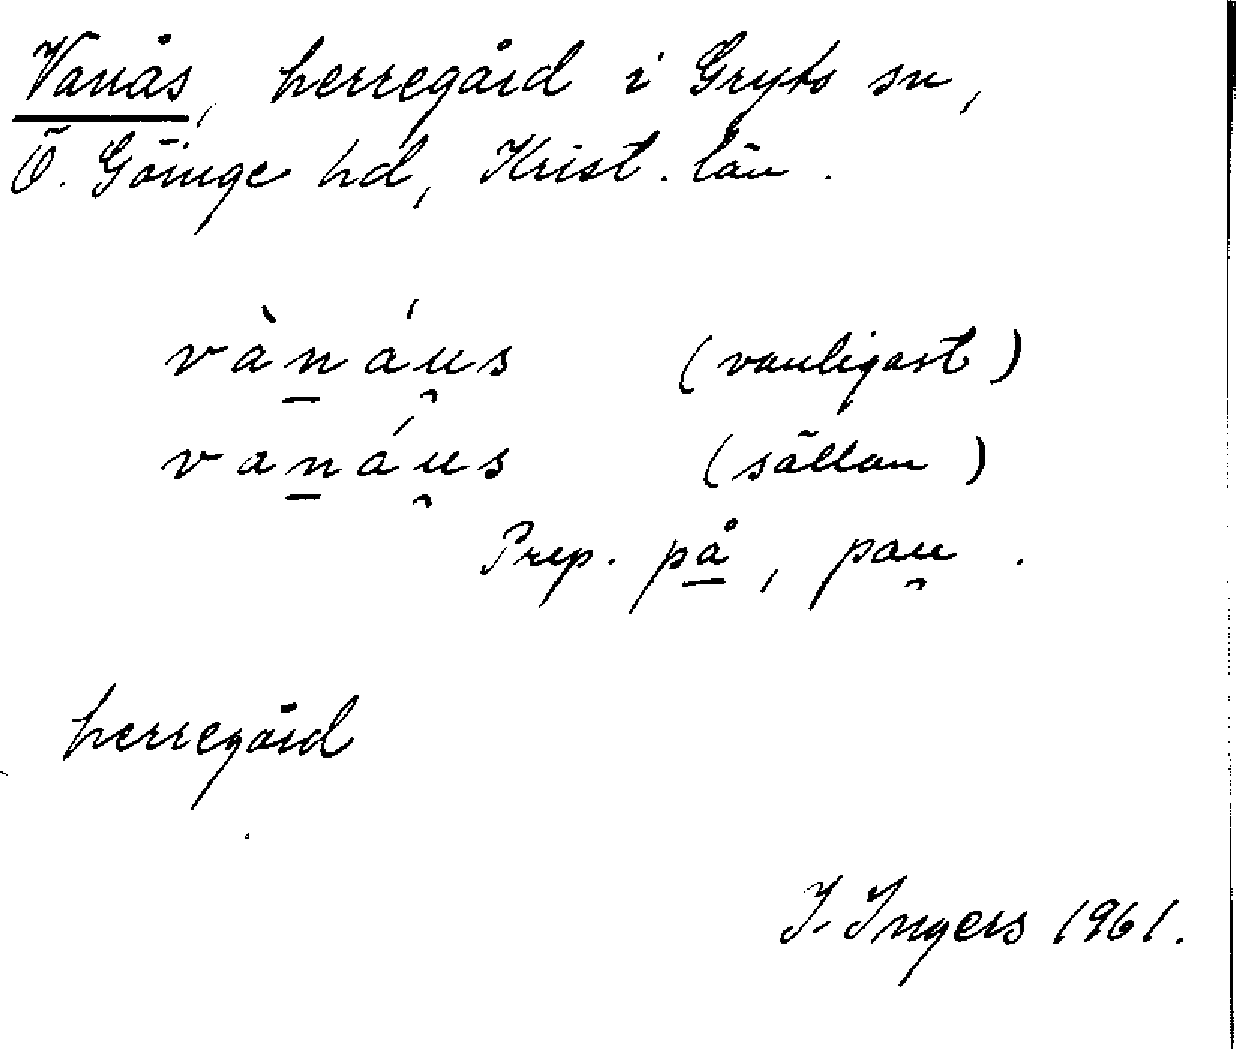 Vanås, herregård i Gryts sn,
Ö. Göinge hd, Krist. län.
vàṉáu̯s (vanligast)
vaṉáu̯s (sällan)
Prep. på̱, pau̯.
herregård
I. Ingers 1961.